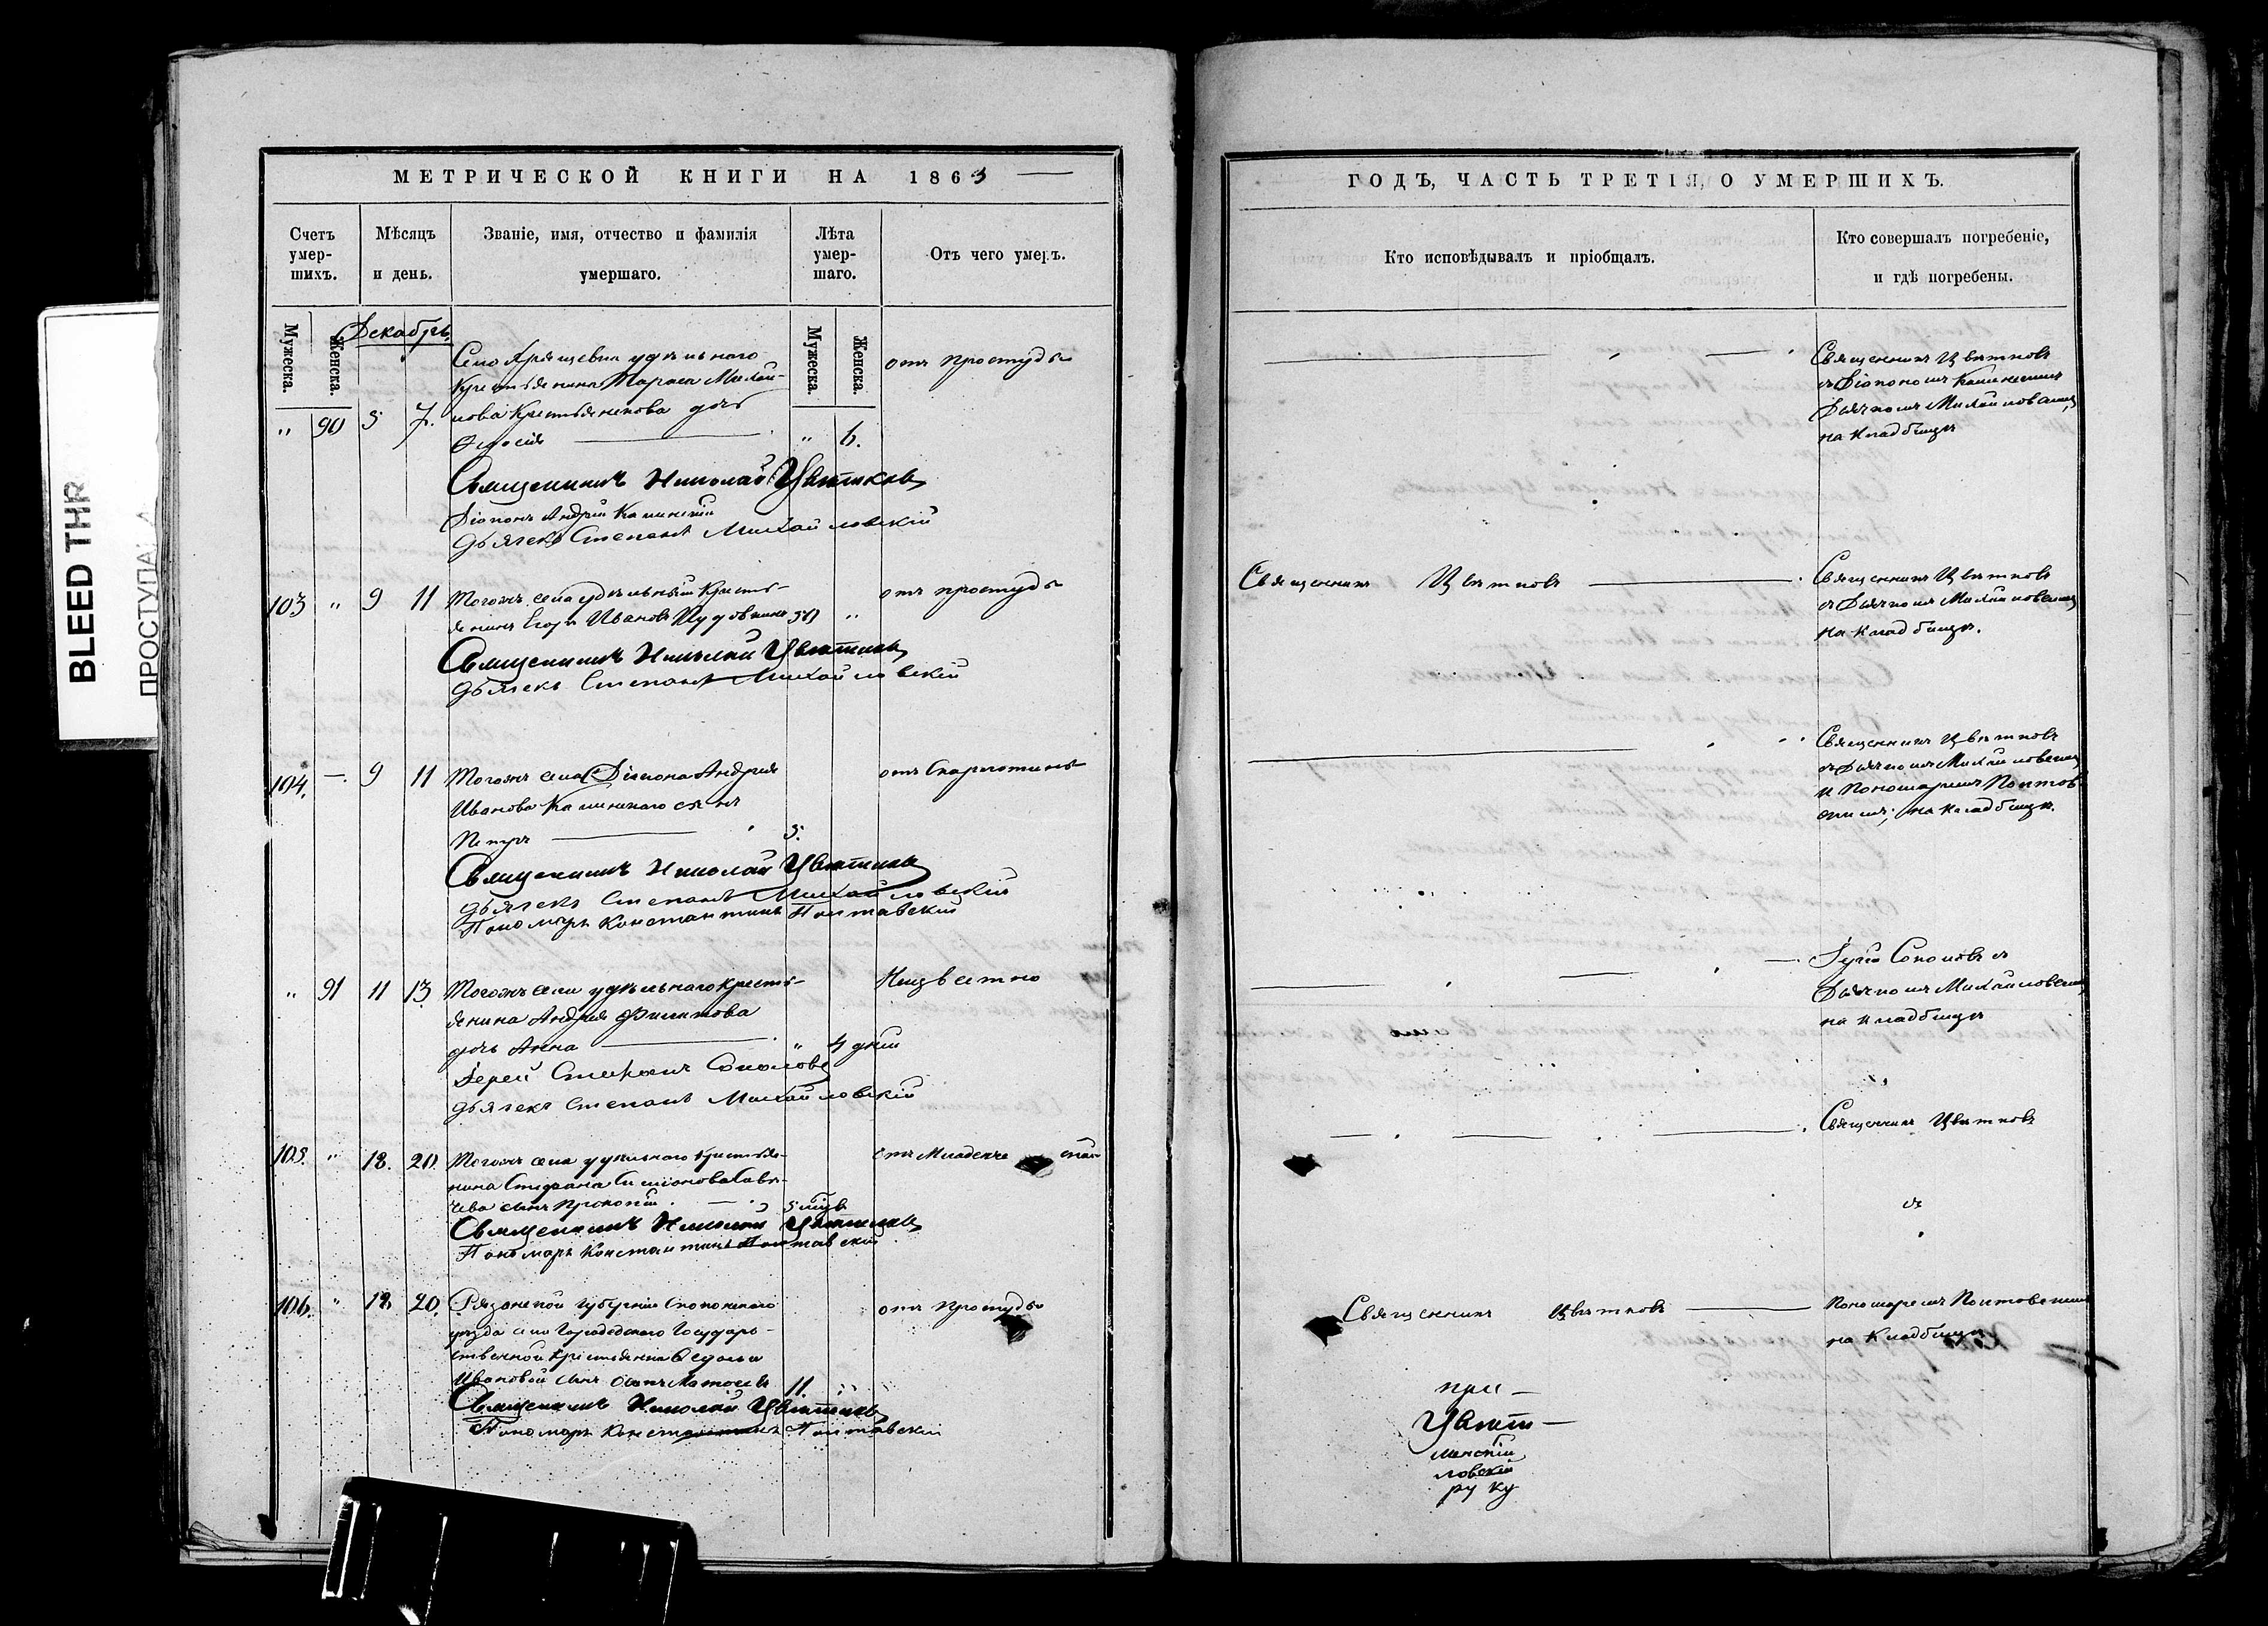 BLEED THR
ПРОСТУПА
МЕТРИЧЕСКОЙ КНИГИ НА 1863
Счетъ умер-шихъ.
Мѣсяцъ и день.
Званіе, имя, отчество и фамилія умершаго.
Лѣта умер-шаго.
Отъ чего умеръ.
Мужеска.
Женска.
Мужеска.
Женска.
Декабрь
Село удѣльнаго отъ простуды
крестьянина Тараса Михай-
" 90 5 7. лова Крестьянинова дочь
" 6.
Священникъ Николай Цвѣтковъ
Діаконъ Андрей Калинскій
Дьячекъ Степанъ Михайловскій
103 " 9 11 Тогожъ села удѣльный кресть- отъ простуды
янинъ Егоръ Ивановъ "
Священникъ Николай Цвѣтковъ
Дьячекъ Степанъ Михайловскій
104. — 9 11 Тогожъ села Діакона Андрея отъ Скарлотины
Иванова Калинскаго сынъ
Петръ 5.
Священникъ Николай Цвѣтковъ
Дьячекъ Степанъ Михайловскій
Пономарь Константинъ Полтавскій
" 91 11 13 Тогожъ села удѣльнаго кресть- Неизвестно
янина Андрея Филипова
дочь Анна " 4 дней
Іерей Соколовъ
Дьячекъ Степанъ Михайловскій
105. " 18. 20. Тогожъ села удѣльнаго крестья- отъ Младенче ской
нина Стефана Симіонова
чева сынъ Прокопій
Священникъ Николай Цвѣтковъ
Пономарь Константинъ Полтавскій
106. " 18. 20. Рязанской Губерніи отъ простуды
уѣзда села Городецкаго Государ-
ственной крестьянки Федосьи
Ивановой сынъ 11. "
Священникъ Николай Цвѣтковъ
Пономарь Константинъ Полтавскій
ГОДЪ, ЧАСТЬ ТРЕТІЯ, О УМЕРШИХЪ.
Кто исповѣдывалъ и пріобщалъ.
Кто совершалъ погребеніе, и гдѣ погребены.
Священникъ Цвѣтковъ
съ Діакономъ Калинскимъ
Дьячкомъ Михайловскимъ
на кладбищѣ
Священникъ Цвѣтковъ
Священникъ Цвѣтковъ
съ Дьячкомъ Михайловскимъ
на кладбищѣ.
Священникъ Цвѣтковъ
съ Дьячкомъ Михайловскимъ
и Пономаремъ Полтав
скимъ; на кладбищѣ.
Іерей Соколовъ съ
Дьячкомъ Михайловскимъ
на кладбищѣ
Священникъ Цвѣтковъ
съ
Священникъ Цвѣтковъ
Пономаремъ Полтавскимъ
на кладбищѣ
при-
Цвѣт-
линскій
ловскій
руку